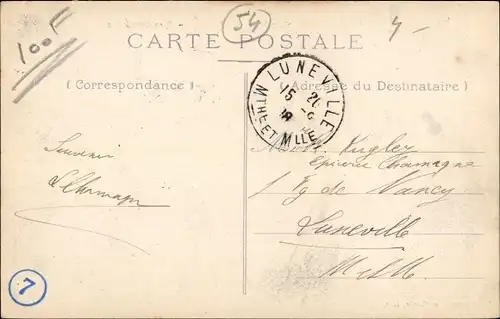 100F
54
4 -
CARTE POSTALE
( Correspondance )
Adresse du Destinataire )
LUNEVILLE
15 20
MTHE ET MLLE
Souvenir
Kugler
Epicerie Champagne
1 Fg de Nancy
Luneville
M & M
7